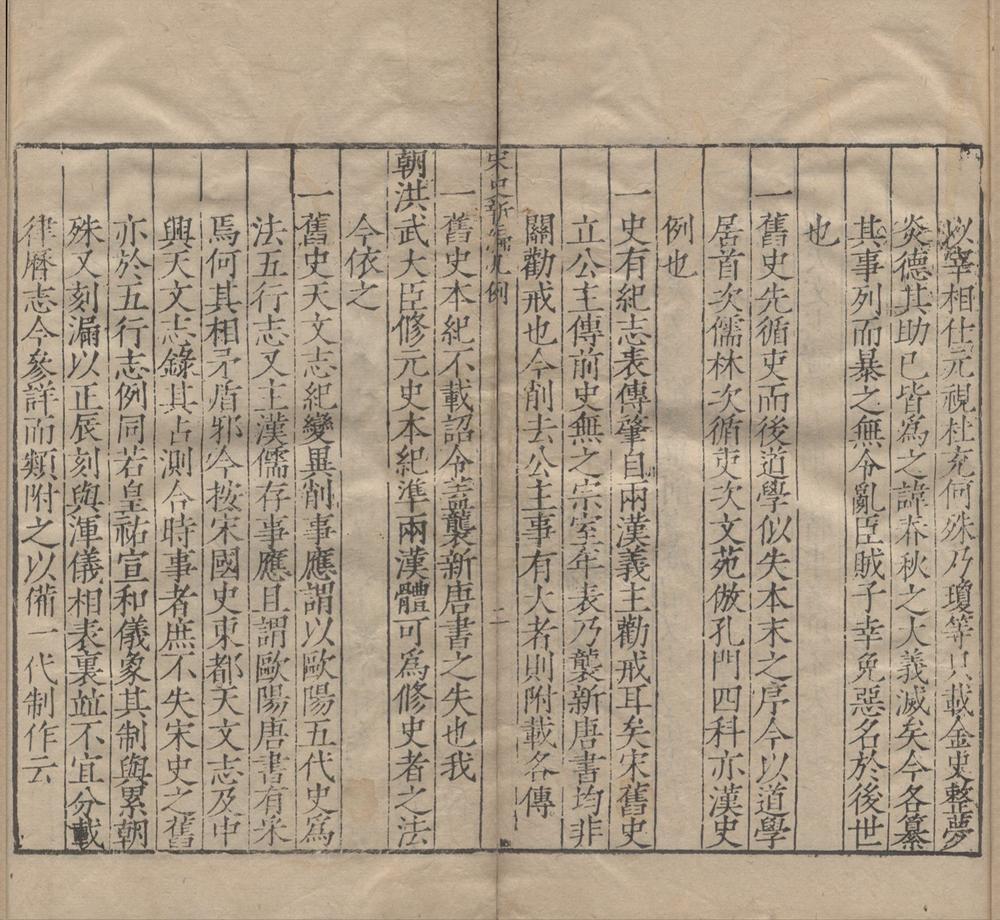 以宰相仕元視杜充何殊乃瓊等只載金史整夢
炎德其助己皆為之諱春秋之大義滅矣今各纂
其事列而暴之無令亂臣賊子幸免惡名於後世
也
一舊史先循吏而後道學似失本末之序今以道學
居首次儒林次循吏次文苑倣孔門四科亦漢史
例也
一史有紀志表傳肇自兩漢義主勸戒耳矣宋舊史
立公主傳前史無之宗室年表乃襲新唐書均非
關勸戒也今削去公主事有大者則附載各傳
宋史新編凡例
二
一舊史本紀不載詔令盖襲新唐書之失也我
朝洪武大臣修元史本紀準兩漢體可為修史者之法
今依之
一舊史天文志紀變異削事應謂以歐陽五代史為
法五行志又主漢儒存事應且謂歐陽唐書有采
焉何其相矛盾邪今按宋國史東都天文志及中
興天文志錄其占測合時事者庶不失宋史之舊
亦於五行志例同若皇祐宣和儀象其制與累朝
殊又刻漏以正辰刻與渾儀相表裏並不宜分載
律曆志今叅詳而類附之以備一代制作云